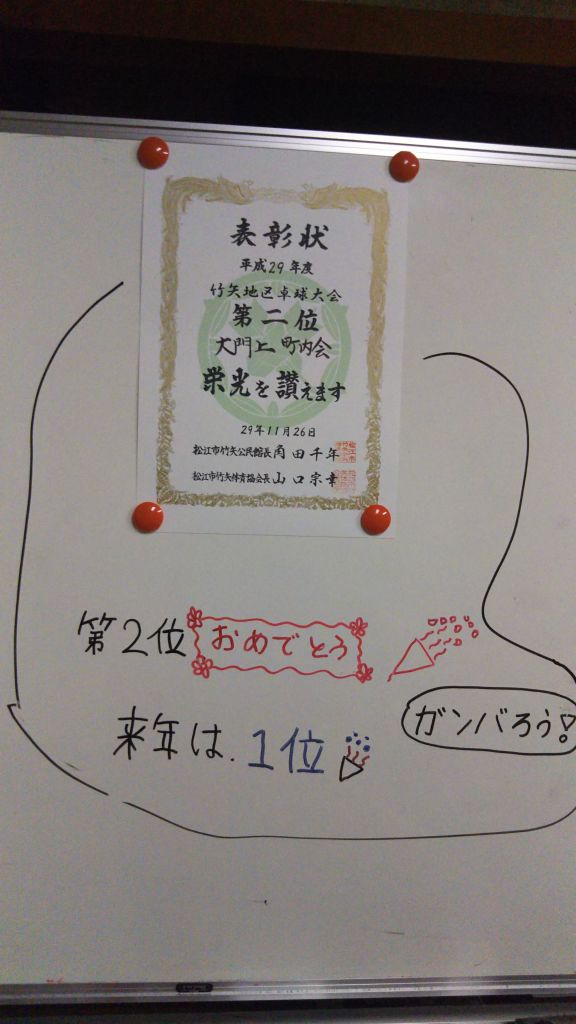 表彰状
平成29年度
竹矢地区卓球大会
第二位
大門上町内会
栄光を讃えます
29年11月26日
松江市竹矢公民館長 角田千年
松江市竹矢体育協会長 山口宗幸
第2位 おめでとう
ガンバろう!
来年は.1位